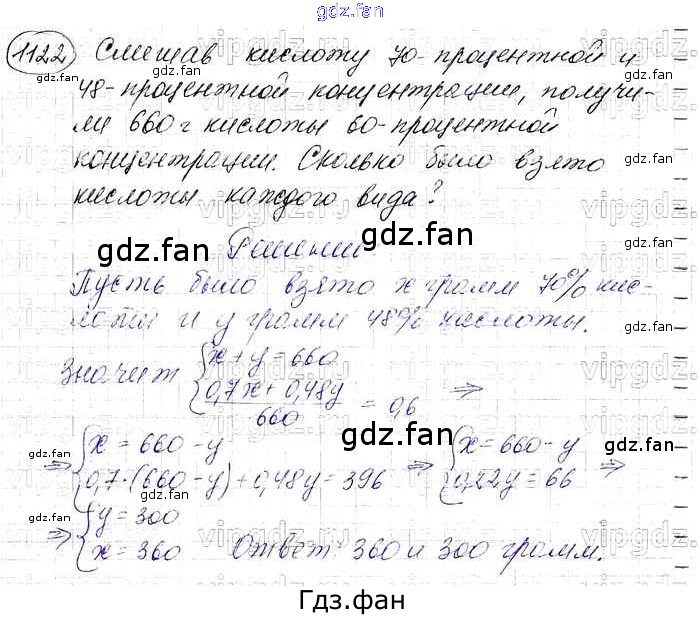 gdz.fan
1122 Смешав кислоту 70-процентной и
48-процентной концентрации, получи-
ли 660 г кислоты 60-процентной
концентрации. Сколько было взято
кислоты каждого вида?
Решении
Пусть было взято x грамм 70% кис-
лоты и y грамм 48% кислоты.
Значит { x + y = 660
(0,7x + 0,48y) / 660 = 0,6 ⇒
⇒ { x = 660 - y
0,7·(660 - y) + 0,48y = 396 ⇒ { x = 660 - y
0,22y = 66 ⇒
⇒ { y = 300
x = 360 Ответ: 360 и 300 грамм.
Гдз.фан